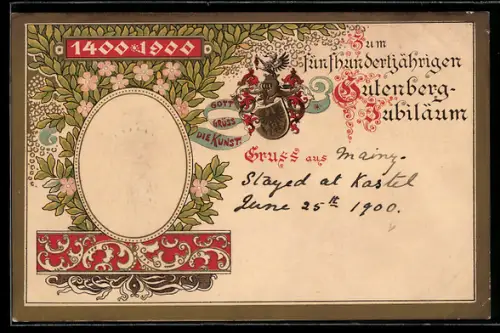 1400 * 1900
Zum
fünfhundertjährigen
Gutenberg-
Jubiläum
GOTT
GRÜSS
DIE KUNST
Gruss aus Mainz.
Stayed at Kastel
June 25th 1900.